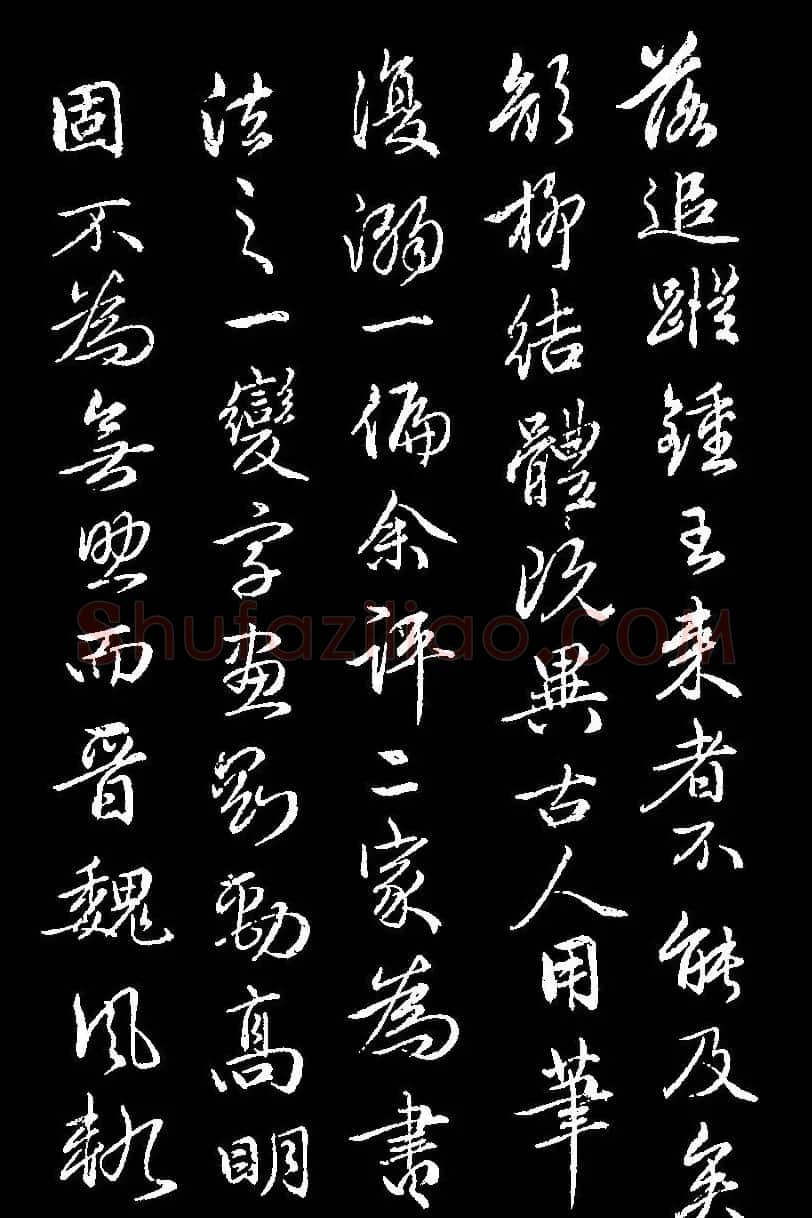 落追蹤鍾王來者不能及矣
顏柳結體既異古人用筆
復溺一偏余評二家為書
法之一變字畫剛勁高明
固不為無照而晉魏風軌
Shufaziliao.COM